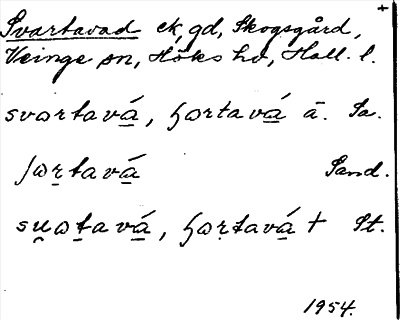 Svartavad ek, gd, Skogsgård, +
Veinge sn, Höks hd, Hall. l.
svɷrtavá, hɷrtavá ä. Sa.
ʃɷrtavá Sand.
su̯ɷtavá, hɷrtavá † St.
1954.